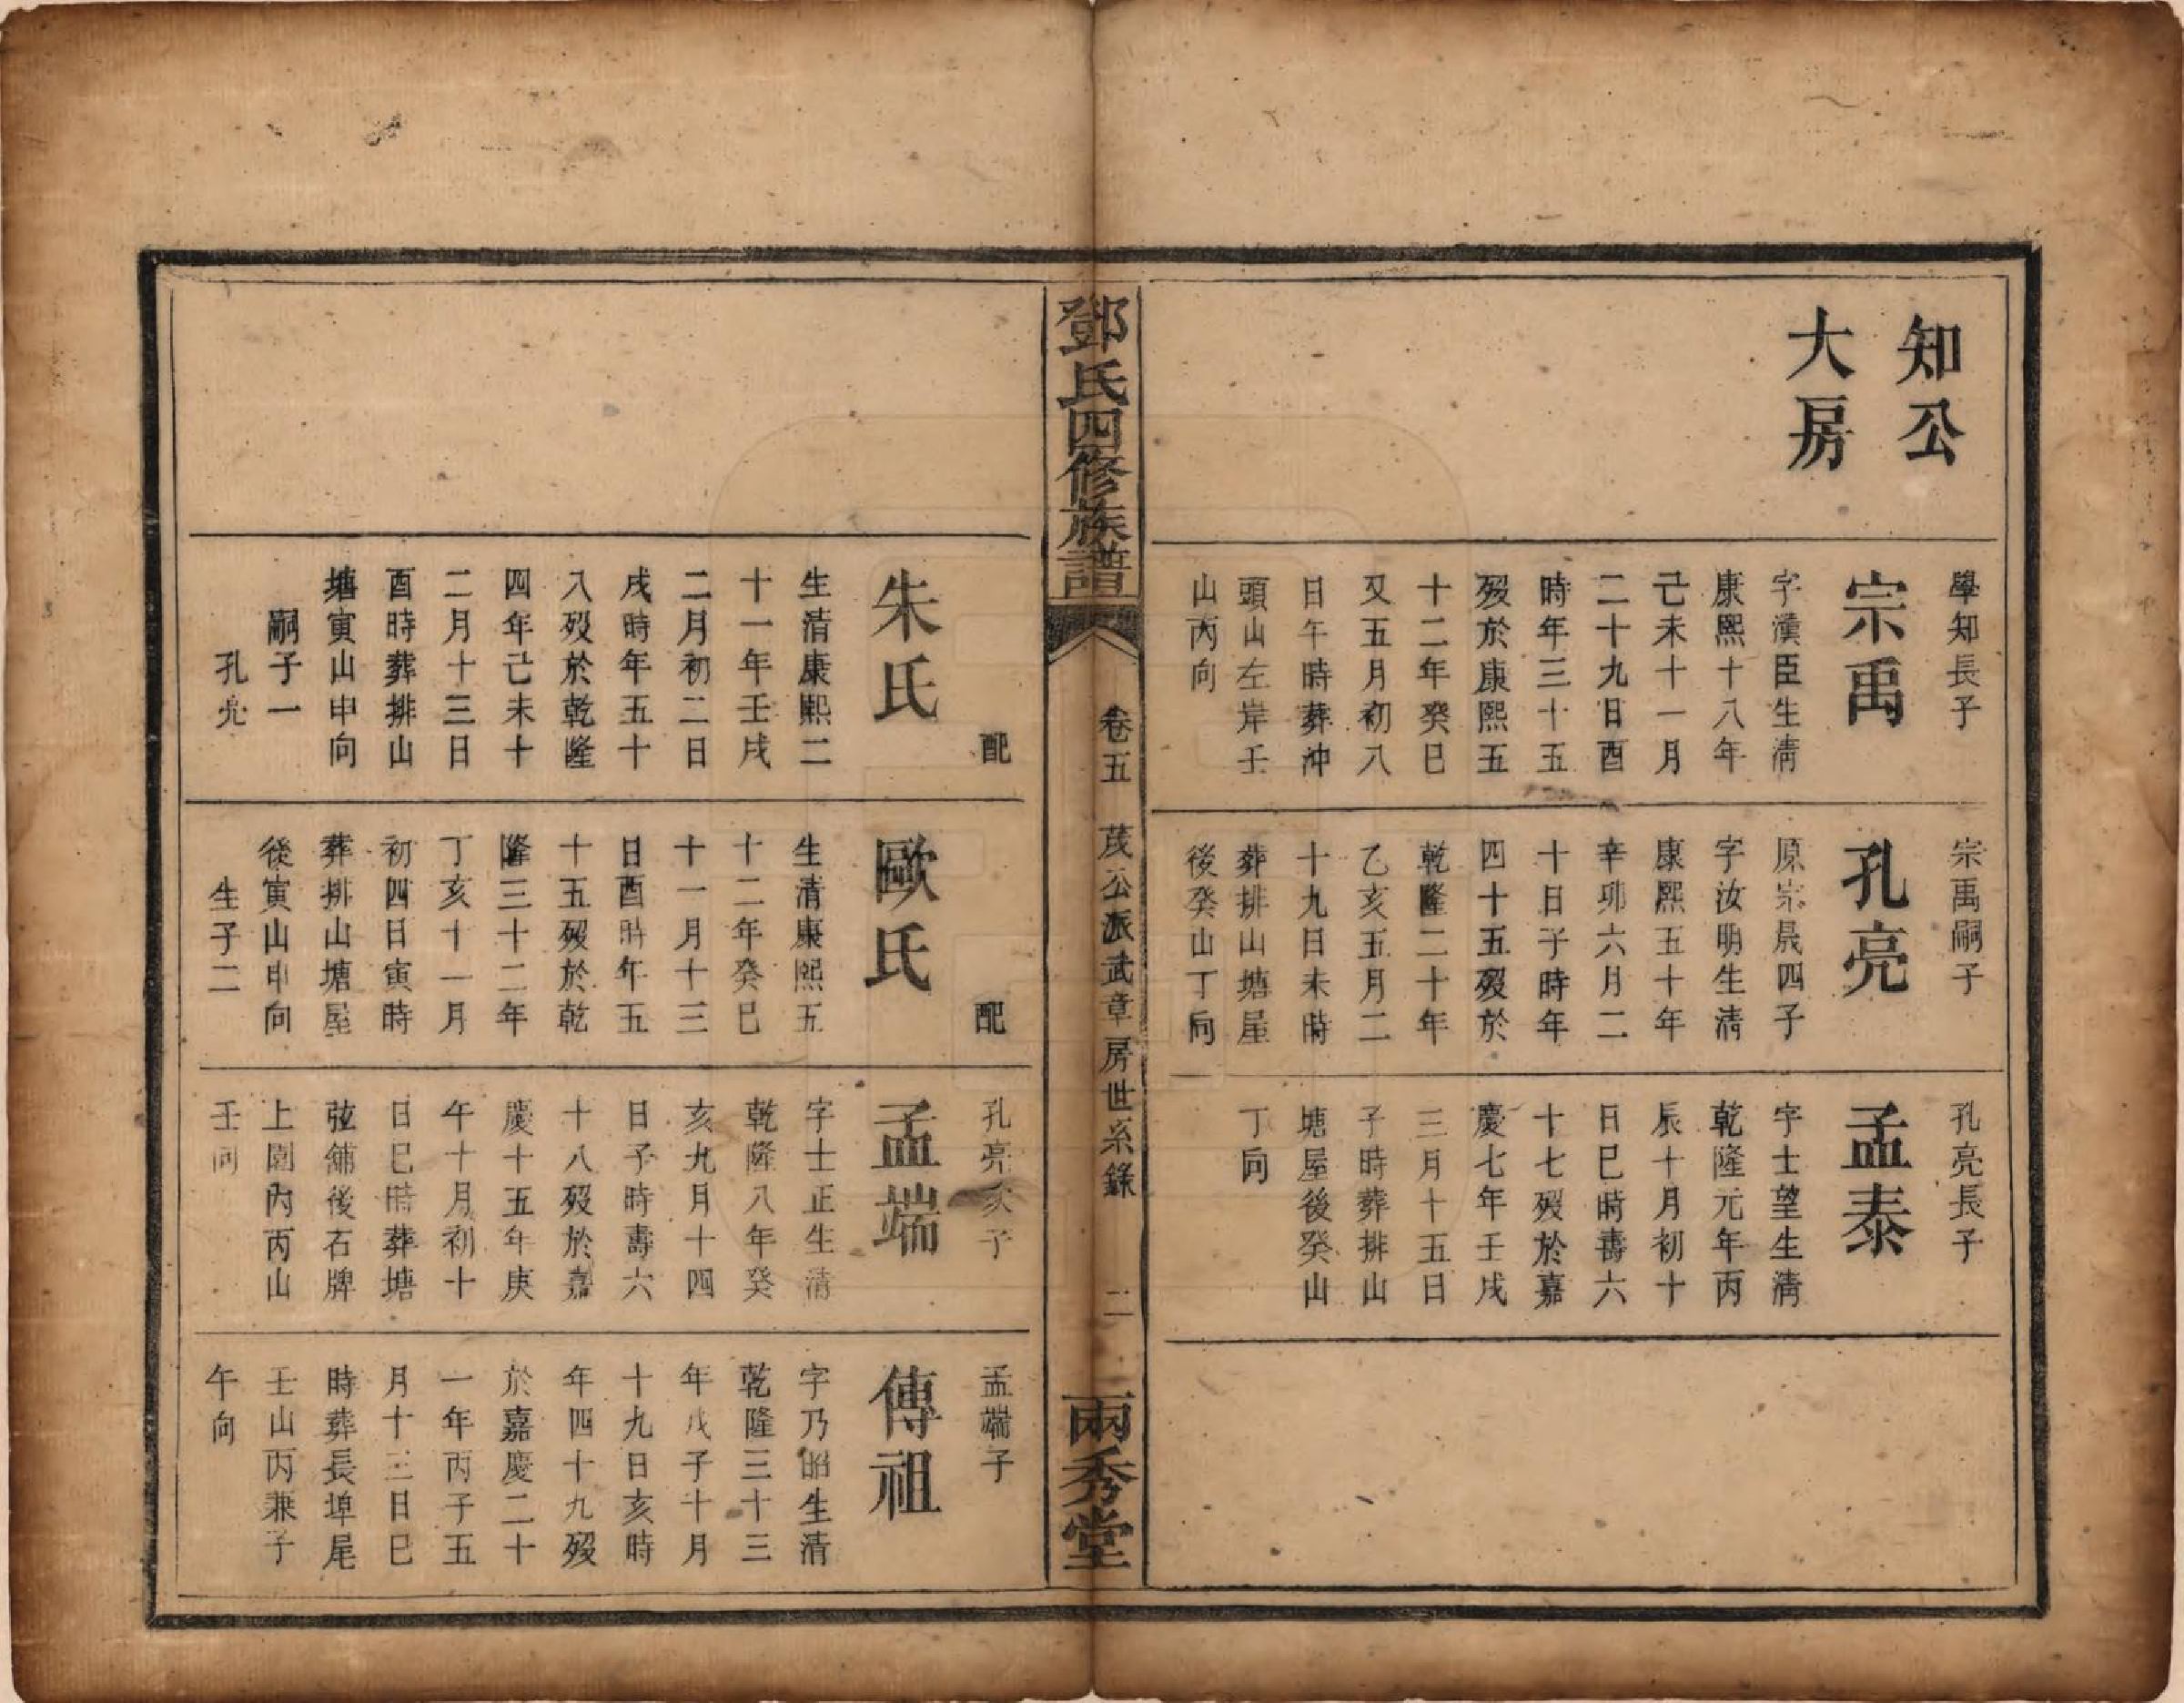 知公
大房
學知長子
宗禹
字漢臣生清
康熙十八年
己未十一月
二十九日酉
時年三十五
歿於康熙五
十二年癸巳
又五月初八
日午時葬沖
頭山左岸壬
山丙向
宗禹嗣子
孔亮
原宗晟四子
字汝明生清
康熙五十年
辛卯六月二
十日子時年
四十五歿於
乾隆二十年
乙亥五月二
十九日未時
葬排山塘屋
後癸山丁向
孔亮長子
孟泰
字士望生清
乾隆元年丙
辰十月初十
日巳時壽六
十七歿於嘉
慶七年壬戌
三月十五日
子時葬排山
塘屋後癸山
丁向
鄧氏四修族譜
卷五 茂公派武章房世系錄 二
兩秀堂
配
朱氏
生清康熙二
十一年壬戌
二月初二日
戌時年五十
八歿於乾隆
四年己未十
二月十三日
酉時葬排山
塘寅山申向
嗣子一
孔亮
配
歐氏
生清康熙五
十二年癸巳
十一月十三
日酉時年五
十五歿於乾
隆三十二年
丁亥十一月
初四日寅時
葬排山塘屋
後寅山申向
生子二
孔亮次子
孟端
字士正生清
乾隆八年癸
亥九月十四
日子時壽六
十八歿於嘉
慶十五年庚
午十月初十
日巳時葬塘
弦鋪後石牌
上園內丙山
壬向
孟端子
傳祖
字乃昭生清
乾隆三十三
年戊子十月
十九日亥時
年四十九歿
於嘉慶二十
一年丙子五
月十三日巳
時葬長埠尾
壬山丙兼子
午向